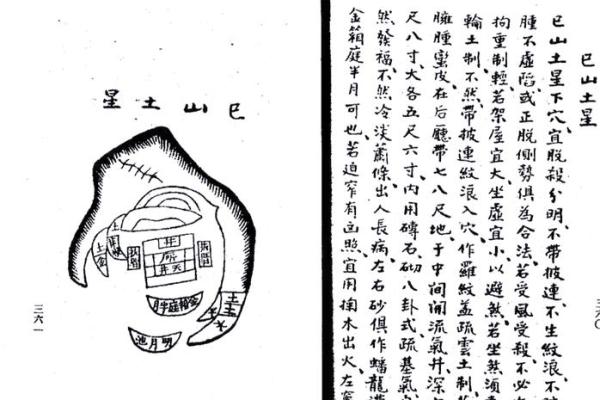 三六〇
巳山土星
巳山土星下穴、宜脫殺分明、不帶披連、不生紋浪、不
腫不虛陷、或正脫側勢俱為合法、若受風受殺、不必
拘重制輕、若架屋宜大、坐虛宜小、以避煞、若坐煞須
輪土制、不然、帶披連紋浪入穴、作羅紋蓋疏雲土制
臃腫蛮皮、在后廳帶七八尺地、于中間開流氣井、深
尺八寸、大各五尺六寸、內用磚石砌八卦式、疏基氣
然發福、不然、冷淡蕭條、出人長病、左右砂俱作蟠龍
金箱庭半月可也、若迫窄有凶照、宜用掏木出火、左
巳山土星
井
天井
金箱庭半月
明月池
土
金
土
水
三六一